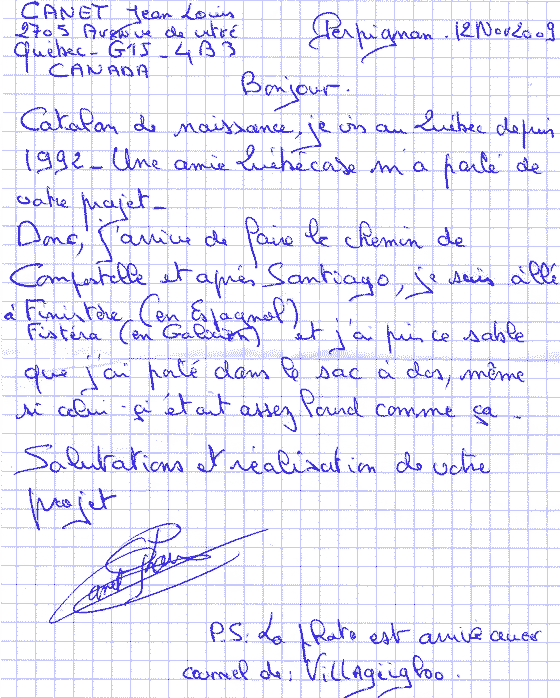 CANET Jean Louis
2705 Avenue de vitré
Québec - G1J - 4B3
CANADA
Perpignan. 12 Nov 2009
Bonjour.
Catalan de naissance, je vis au Québec depuis
1992 - Une amie Québécoise m'a parlé de
votre projet -
Donc, j'arrive de faire le chemin de
Compostelle et après Santiago, je suis allé
à Finistère (en Espagnol)
Fistéra (en Galicien) et j'ai pris ce sable
que j'ai porté dans le sac à dos, même
si celui-çi était assez lourd comme ça.
Salutations et réalisation de votre
projet
Canet Jean
P.S. La photo est
carnet de: Villageigloo.